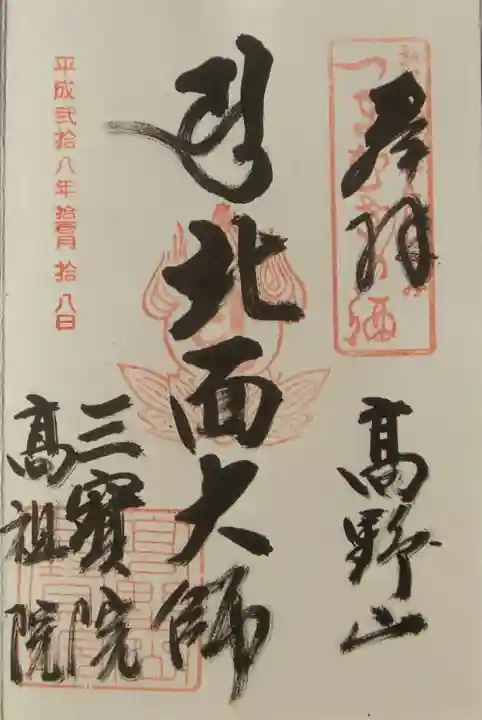 奉拝
高野山
北面大師
三寳院
高祖院
平成弐拾八年拾壹月拾八日